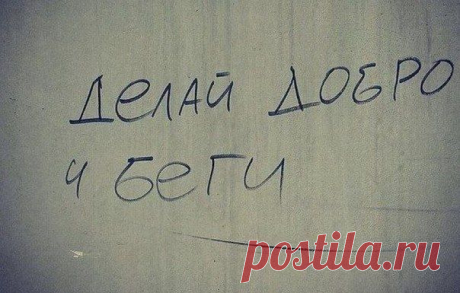 Делай добро
и беги
postila.ru